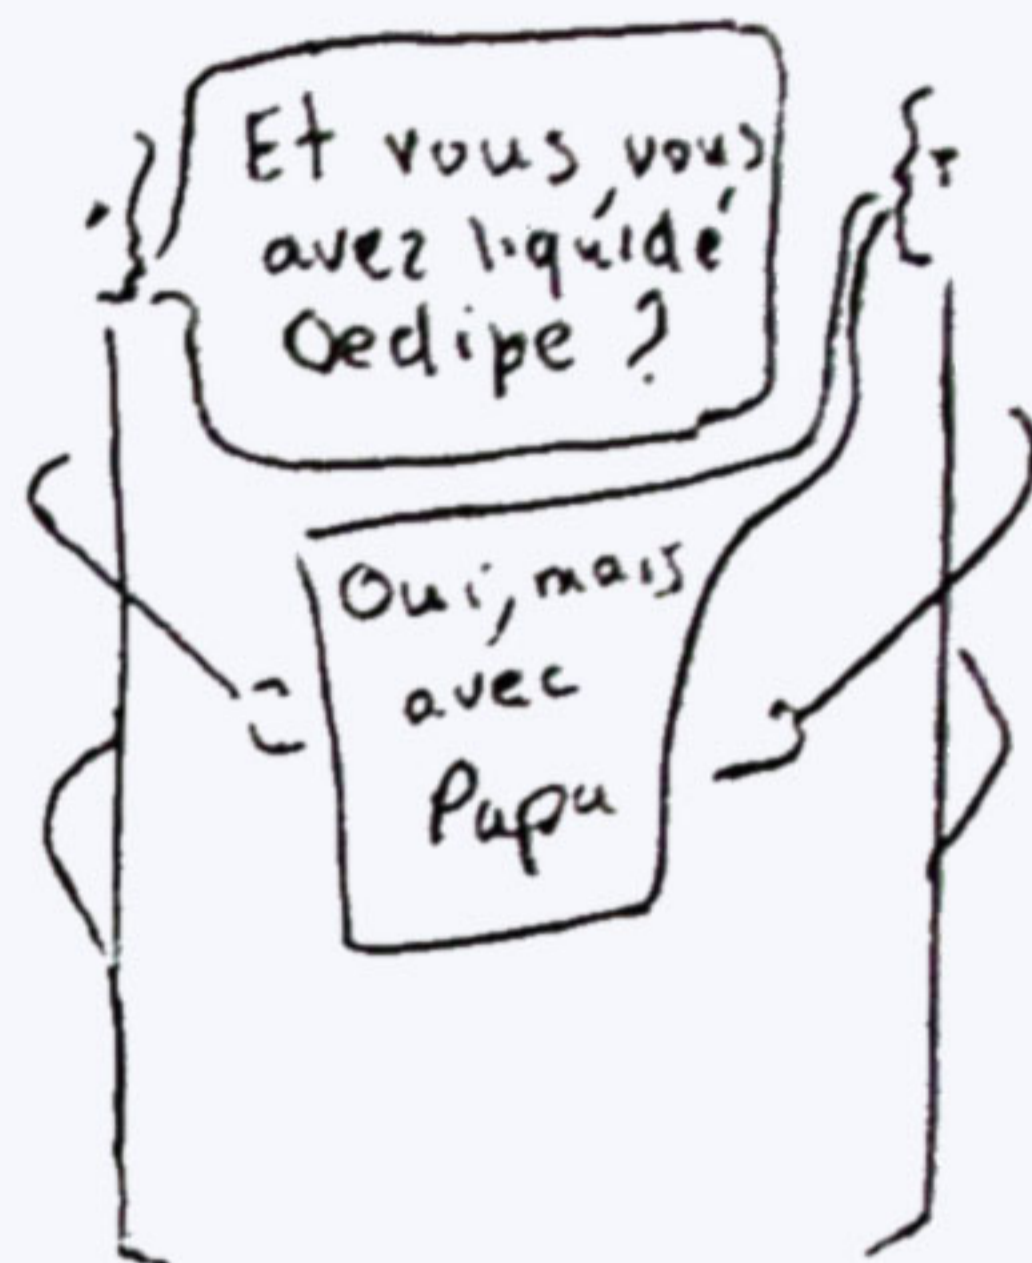 Et vous vous
avez liquidé
Oedipe ?
Oui, mais
avec
Papa